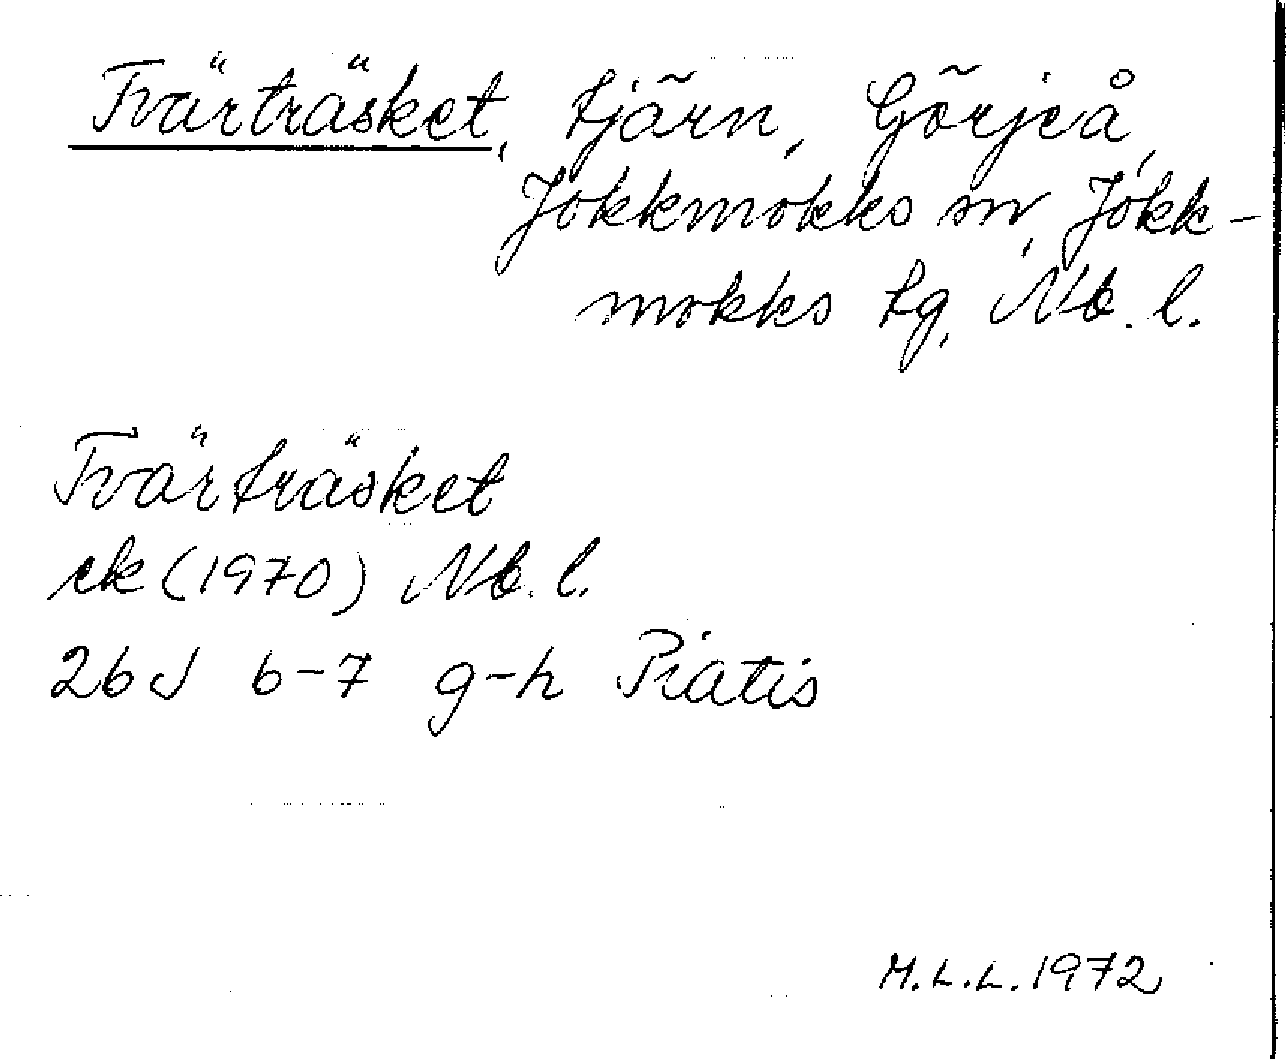 Tvärträsket, tjärn, Görjeå,
Jokkmokks sn, Jokk-
mokks tg, Nb. l.
Tvärträsket
ek (1970) Nb. l.
26J 6-7 g-h Piatis
M.L.L. 1972